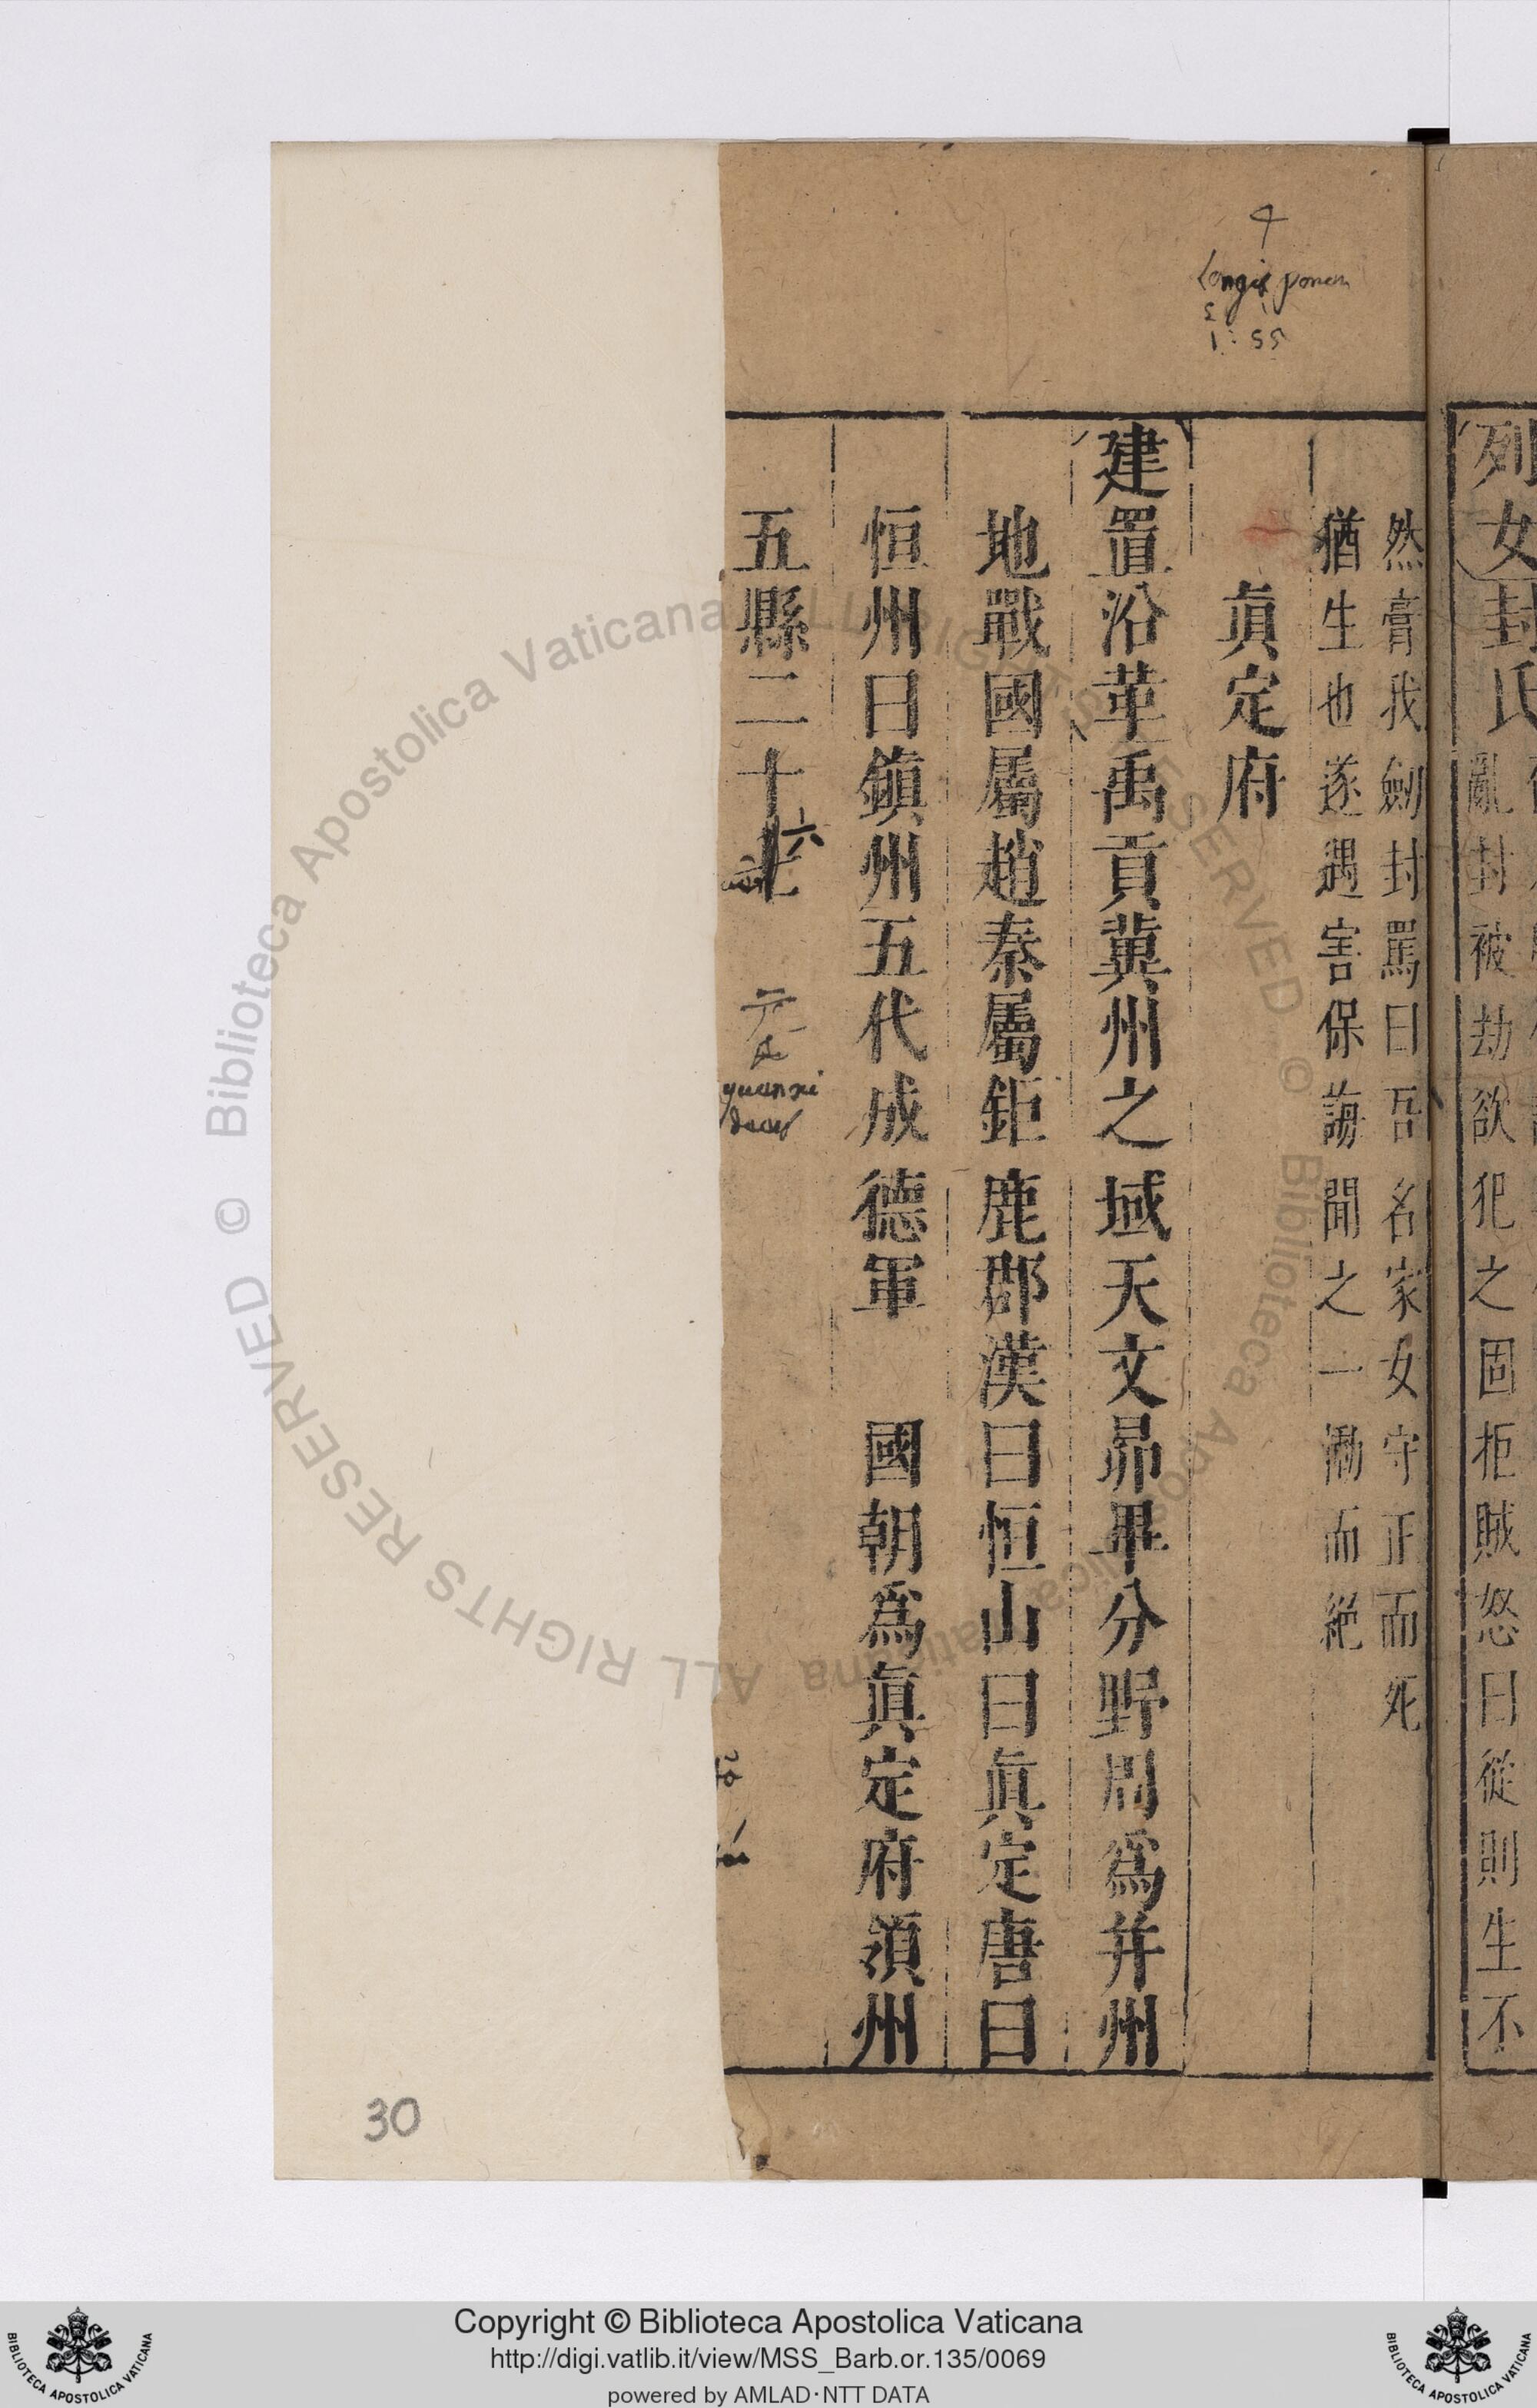 列女封氏
亂封被劫欲犯之固拒賊怒曰從則生不
然膏我劍封罵曰吾名家女守正而死
猶生也遂遇害保誨聞之一慟而絕
眞定府
建置沿革禹貢冀州之域天文昴畢分野周爲并州
地戰國屬趙秦屬鉅鹿郡漢曰恒山曰眞定唐曰
恒州曰鎮州五代成德軍 國朝爲眞定府領州
五縣二十六
1:55
30
Copyright © Biblioteca Apostolica Vaticana
http://digi.vatlib.it/view/MSS_Barb.or.135/0069
powered by AMLAD·NTT DATA
BIBLIOTECA APOSTOLICA VATICANA
BIBLIOTECA APOSTOLICA VATICANA
© Biblioteca Apostolica Vaticana ALL RIGHTS RESERVED © Biblioteca Apostolica Vaticana ALL RIGHTS RESERVED